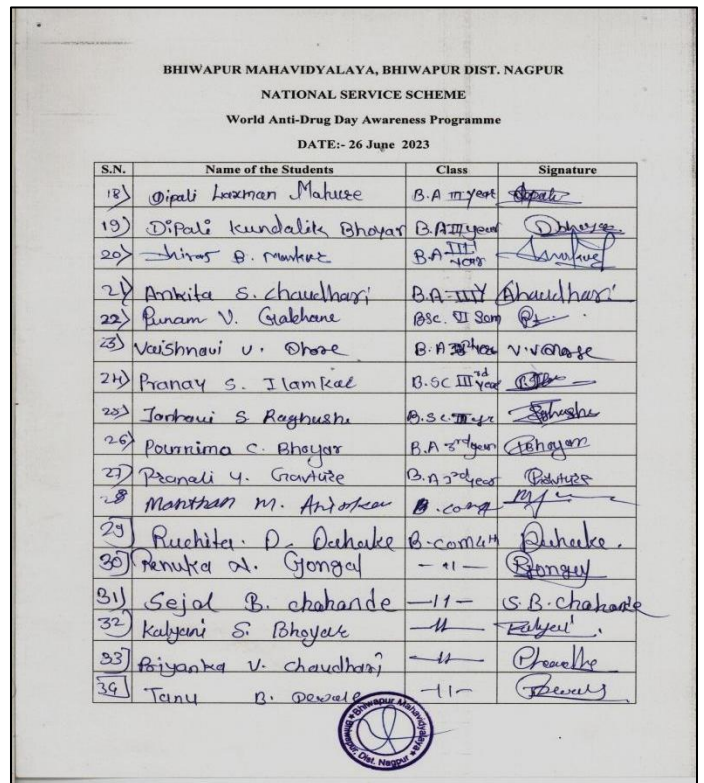 BHIWAPUR MAHAVIDYALAYA, BHIWAPUR DIST. NAGPUR
NATIONAL SERVICE SCHEME
World Anti-Drug Day Awareness Programme
DATE:- 26 June 2023
S.N. Name of the Students Class Signature
18) Dipali Laxman Mahure B.A III year
19) Dipali Kundalik Bhoyar B.A III year
20) B. B.A III year
21) Ankita S. chaudhari B.A-III Y Chaudhari
22) Punam V. Gakhane BSc. VI Sem
23) Vaishnavi V. Dhore B.A year
24) Pranay S. Ilamkar B.SC IIIrd year
25) Janhavi S Raghushe B.Sc. III yr
26) Pournima C. Bhoyar B.A 3rd year Bhoyar
27) Pranali Y. Gavture B.A 3rd year
28 Manthan M. B.com
29) Ruchita. D. Dahake B-com 4th Dahake.
30) Renuka N. Gongal -11-
31) Sejal B. chahande -11- S.B. chahande
32) Kalyani S. Bhoyar -11- Kalyani.
33) Priyanka V. chaudhari -11-
34) Tanu B. Dewale -11-
Bhiwapur Mahavidyalaya
Bhiwapur, Dist. Nagpur